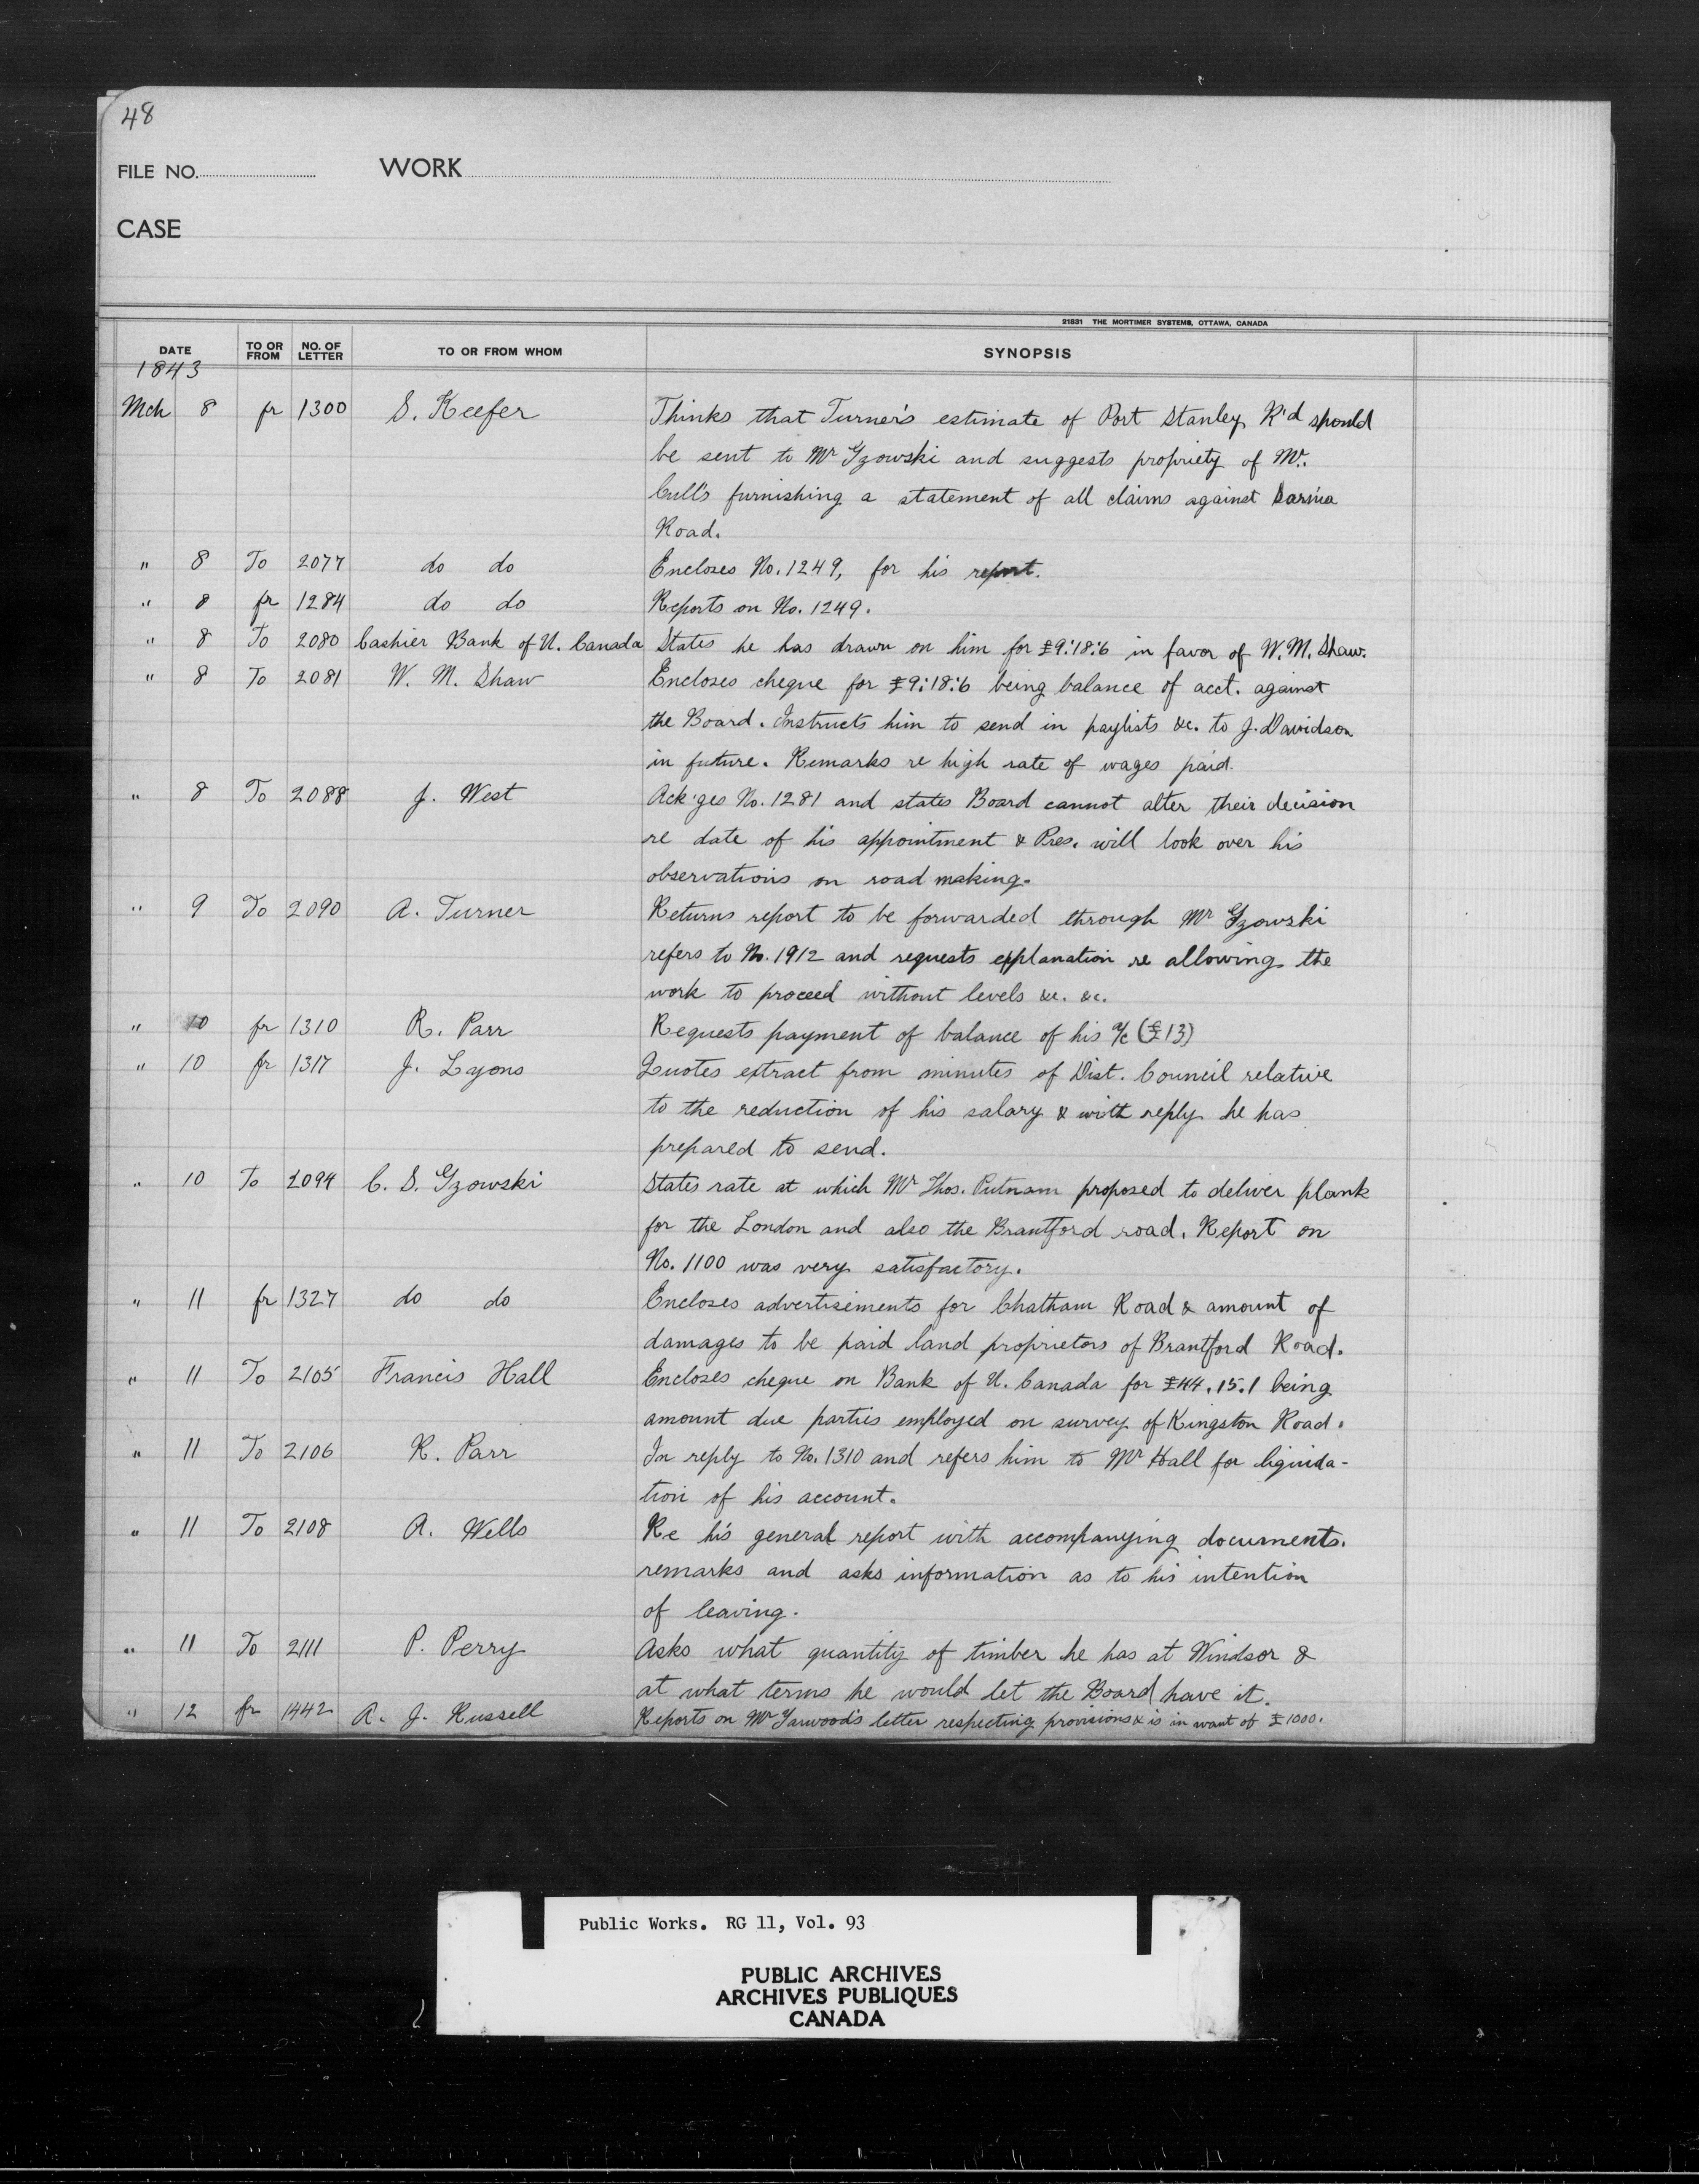 48
FILE NO. WORK
CASE
21831 THE MORTIMER SYSTEMS, OTTAWA, CANADA
DATE TO OR FROM NO. OF LETTER TO OR FROM WHOM SYNOPSIS
1843
Mch 8 fr 1300 S. Keefer Thinks that Turner's estimate of Port Stanley R'd should
be sent to Mr Gzowski and suggests propriety of Mr.
Cull's furnishing a statement of all claims against Sarnia
Road.
" 8 To 2077 do do Encloses No. 1249, for his report.
" 8 fr 1284 do do Reports on No. 1249.
" 8 To 2080 Cashier Bank of U. Canada States he has drawn on him for £9:18:6 in favor of W. M. Shaw.
" 8 To 2081 W. M. Shaw Encloses cheque for £9:18:6 being balance of acct. against
the Board. Instructs him to send in paylists &c. to J. Davidson
in future. Remarks re high rate of wages paid.
" 8 To 2088 J. West Ack'ges No. 1281 and states Board cannot alter their decision
re date of his appointment & Pres. will look over his
observations on road making.
" 9 To 2090 A. Turner Returns report to be forwarded through Mr Gzowski
refers to No. 1912 and requests explanation re allowing the
work to proceed without levels &c. &c.
" 10 fr 1310 R. Parr Requests payment of balance of his a/c (£13)
" 10 fr 1317 J. Lyons Quotes extract from minutes of Dist. Council relative
to the reduction of his salary & with reply he has
prepared to send.
" 10 To 2094 C. S. Gzowski States rate at which Mr Thos. Putnam proposed to deliver plank
for the London and also the Brantford road. Report on
No. 1100 was very satisfactory.
" 11 fr 1327 do do Encloses advertisements for Chatham Road & amount of
damages to be paid land proprietors of Brantford Road.
" 11 To 2105 Francis Hall Encloses cheque on Bank of U. Canada for £44.15.1 being
amount due parties employed on survey of Kingston Road.
" 11 To 2106 R. Parr In reply to No. 1310 and refers him to Mr Hall for liquida-
tion of his account.
" 11 To 2108 A. Wells Re his general report with accompanying documents.
remarks and asks information as to his intention
of leaving.
" 11 To 2111 P. Perry Asks what quantity of timber he has at Windsor &
at what terms he would let the Board have it.
" 12 fr 1442 A. J. Russell Reports on Mr Yarwood's letter respecting provisions & is in want of £1000.
Public Works. RG 11, Vol. 93
PUBLIC ARCHIVES
ARCHIVES PUBLIQUES
CANADA